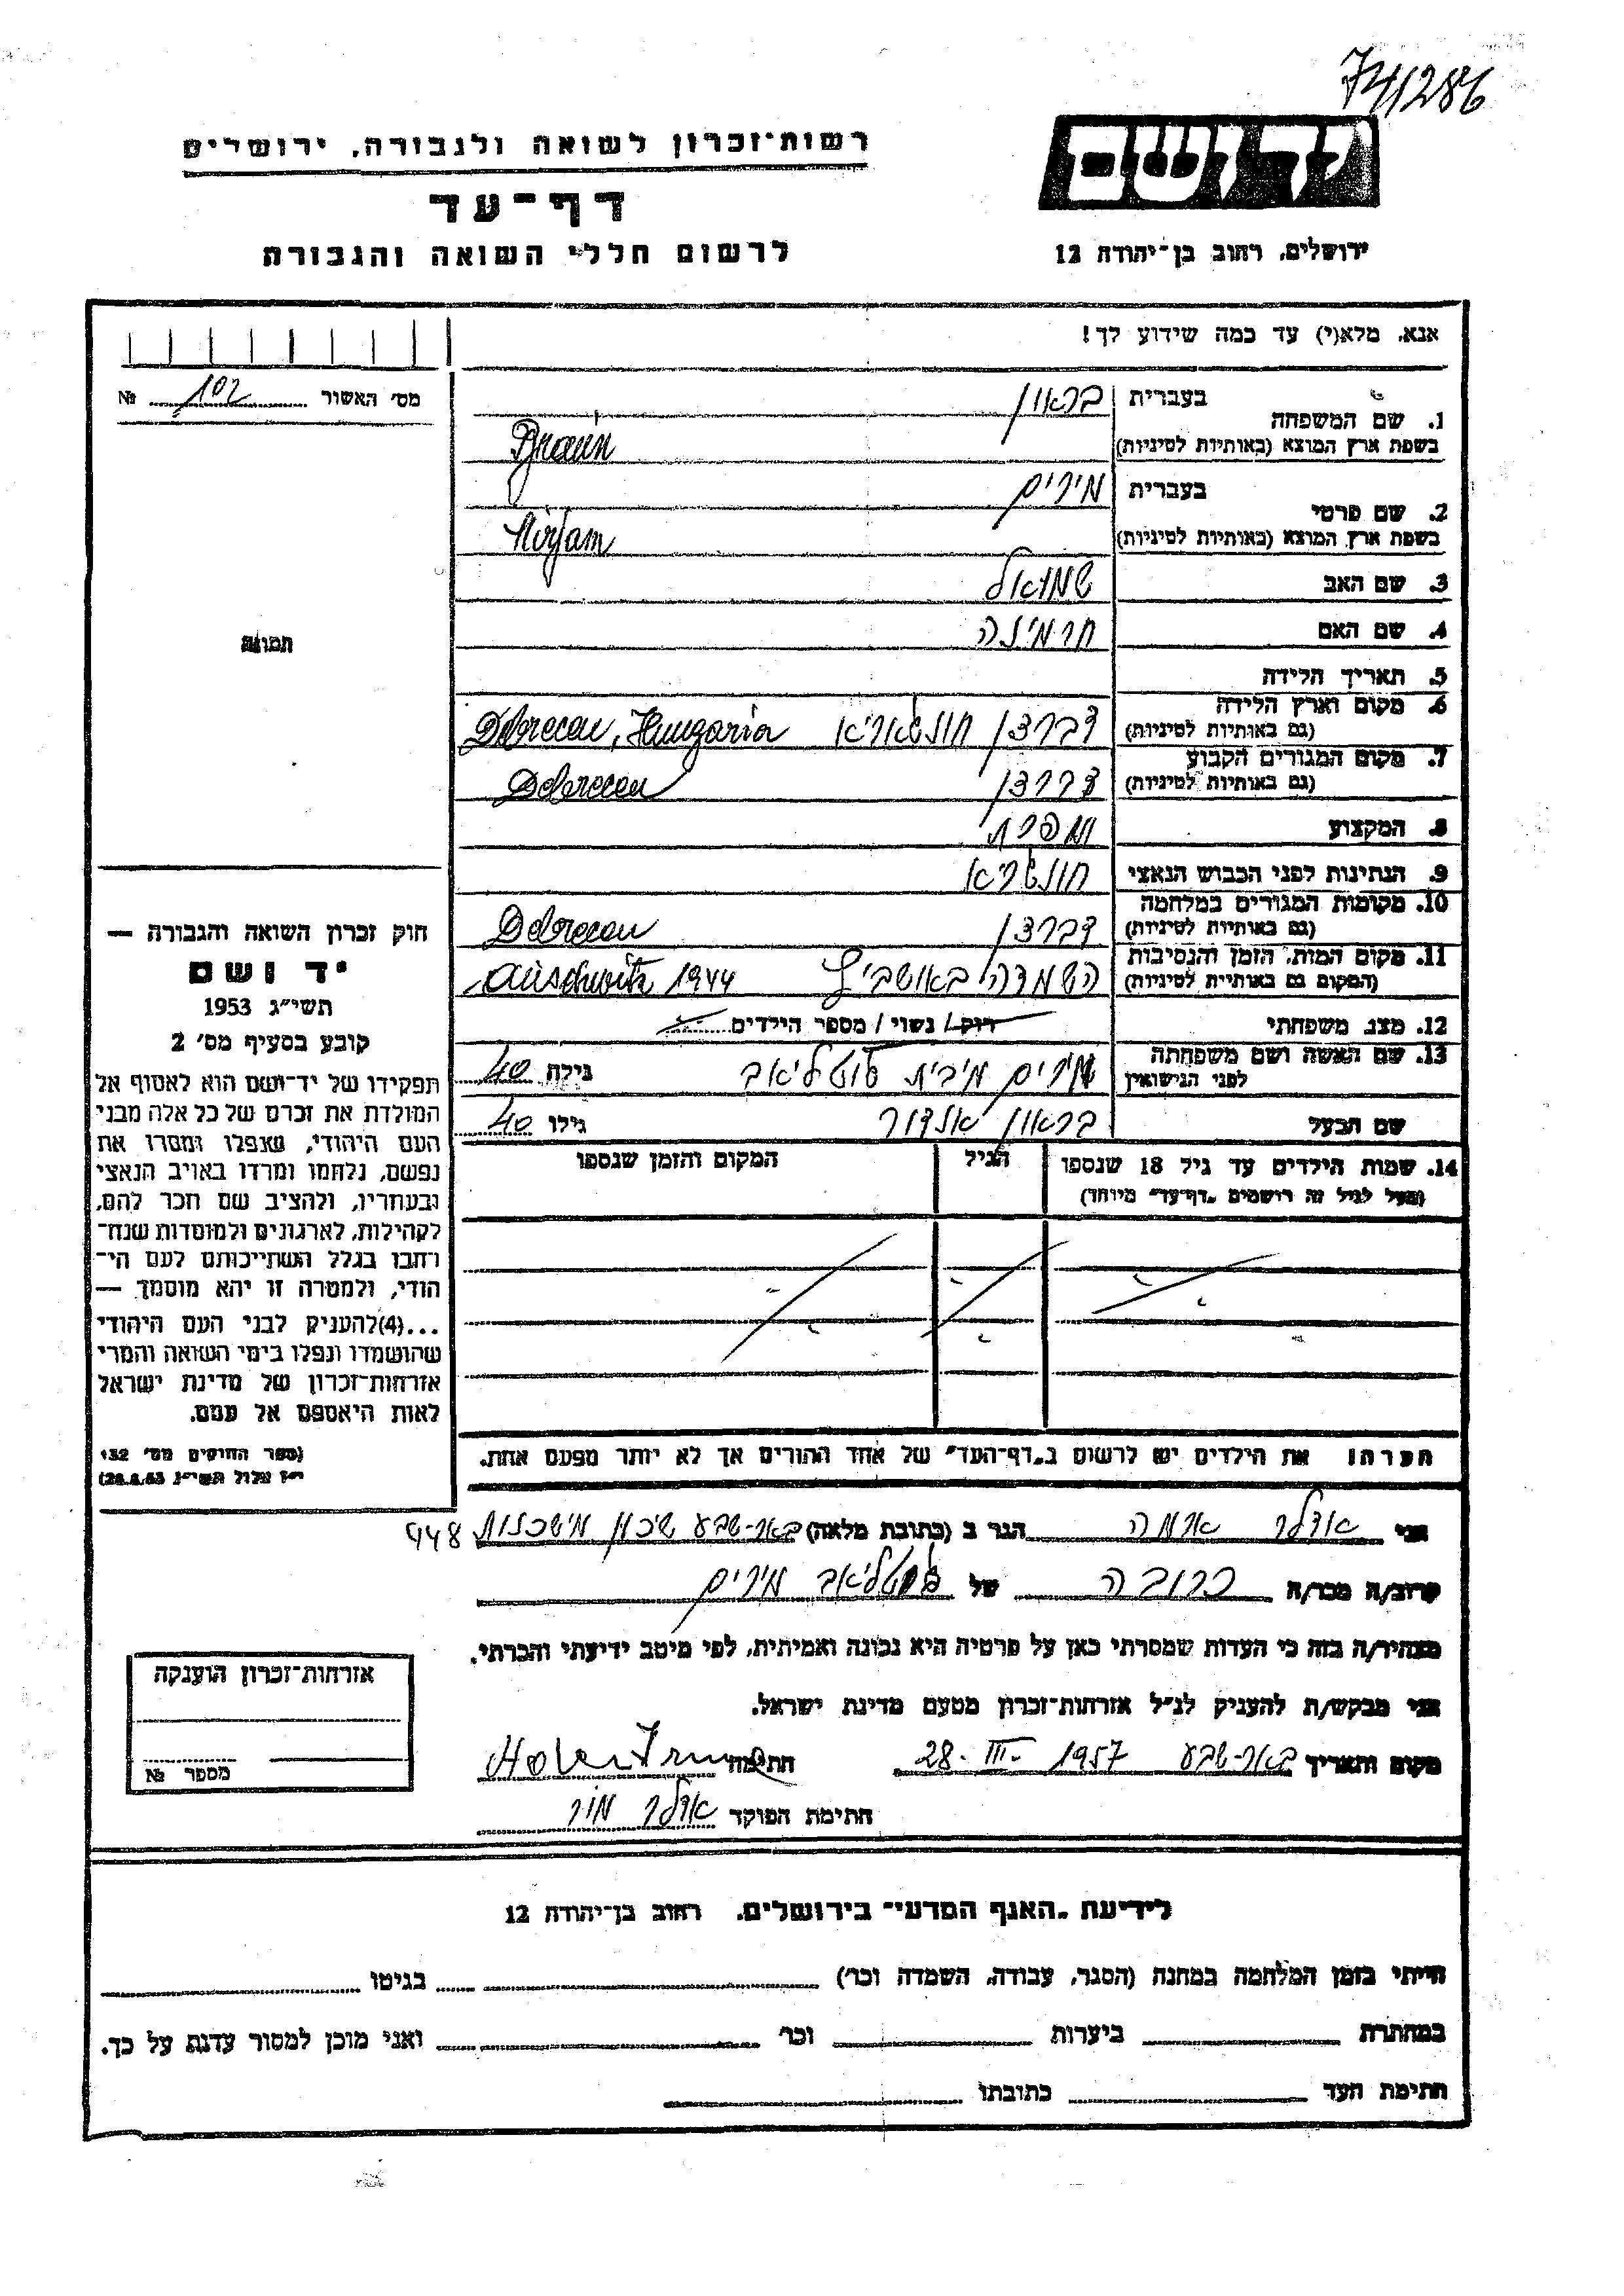 74/286
יד ושם
רשות־זכרון לשואה ולגבורה, ירושלים
דף־עד
לרשום חללי השואה והגבורה
ירושלים, רחוב בן־יהודה 12
אנא, מלא(י) עד כמה שידוע לך!
מס' האשור 102 №
1. שם המשפחה
בעברית בראון
בשפת ארץ המוצא (באותיות לטיניות) Braun
2. שם פרטי
בעברית מירים
בשפת ארץ המוצא (באותיות לטיניות) Mirjam
3. שם האב שמואל
4. שם האם חרמינה
5. תאריך הלידה
6. מקום וארץ הלידה
(גם באותיות לטיניות) דברצן Debrecen, Hungaria
7. מקום המגורים הקבוע
(גם באותיות לטיניות) דברצן Debrecen
8. המקצוע
9. הנתינות לפני הכבוש הנאצי
10. מקומות המגורים במלחמה
(גם באותיות לטיניות) דברצן Debrecen
11. מקום המות, הזמן והנסיבות
(המקום גם באותיות לטיניות) השמדה באושביץ Auschwitz 1944
12. מצב משפחתי רוק/ נשוי/ מספר הילדים
13. שם האשה ושם משפחתה
לפני הנישואין מירים מבית גילה 40
שם הבעל בראון אלדור גילו 40
14. שמות הילדים עד גיל 18 שנספו
(מעל לגיל זה רושמים „דף־עד" מיוחד)
הגיל
המקום והזמן שנספו
הערה: את הילדים יש לרשום ב„דף־העד" של אחד ההורים אך לא יותר מפעם אחת.
תמונה
חוק זכרון השואה והגבורה —
יד ושם
תשי"ג 1953
קובע בסעיף מס' 2
תפקידו של יד־ושם הוא לאסוף אל
המולדת את זכרם של כל אלה מבני
העם היהודי, שנפלו ומסרו את
נפשם, נלחמו ומרדו באויב הנאצי
ובעוזריו, ולהציב שם וזכר להם,
לקהילות, לארגונים ולמוסדות שנח־
רבו בגלל השתייכותם לעם הי־
הודי, ולמטרה זו יהא מוסמך —
...(4)להעניק לבני העם היהודי
שהושמדו ונפלו בימי השואה והמרי
אזרחות־זכרון של מדינת ישראל
לאות היאספם אל עמם.
(ספר החוקים מס' 132,
י"ז אלול תשי"ג 28.8.53)
אני אדלר ארמה הגר ב (כתובת מלאה) באר־שבע שיכון משכנות 448
קרוב/ה מכר/ה קרובה של מירים
מצהיר/ה בזה כי העדות שמסרתי כאן על פרטיה היא נכונה ואמיתית, לפי מיטב ידיעתי והכרתי.
אני מבקש/ת להעניק לנ"ל אזרחות־זכרון מטעם מדינת ישראל.
מקום ותאריך באר־שבע 28.III.1957 חתימה
חתימת הפוקד אדלר מור
אזרחות־זכרון הוענקה
מספר №
לידיעת „האגף המדעי" בירושלים, רחוב בן־יהודה 12
הייתי בזמן המלחמה במחנה (הסגר, עבודה, השמדה וכו') בגיטו
במחתרת ביערות וכו' ואני מוכן למסור עדות על כך.
חתימת העד כתובתו